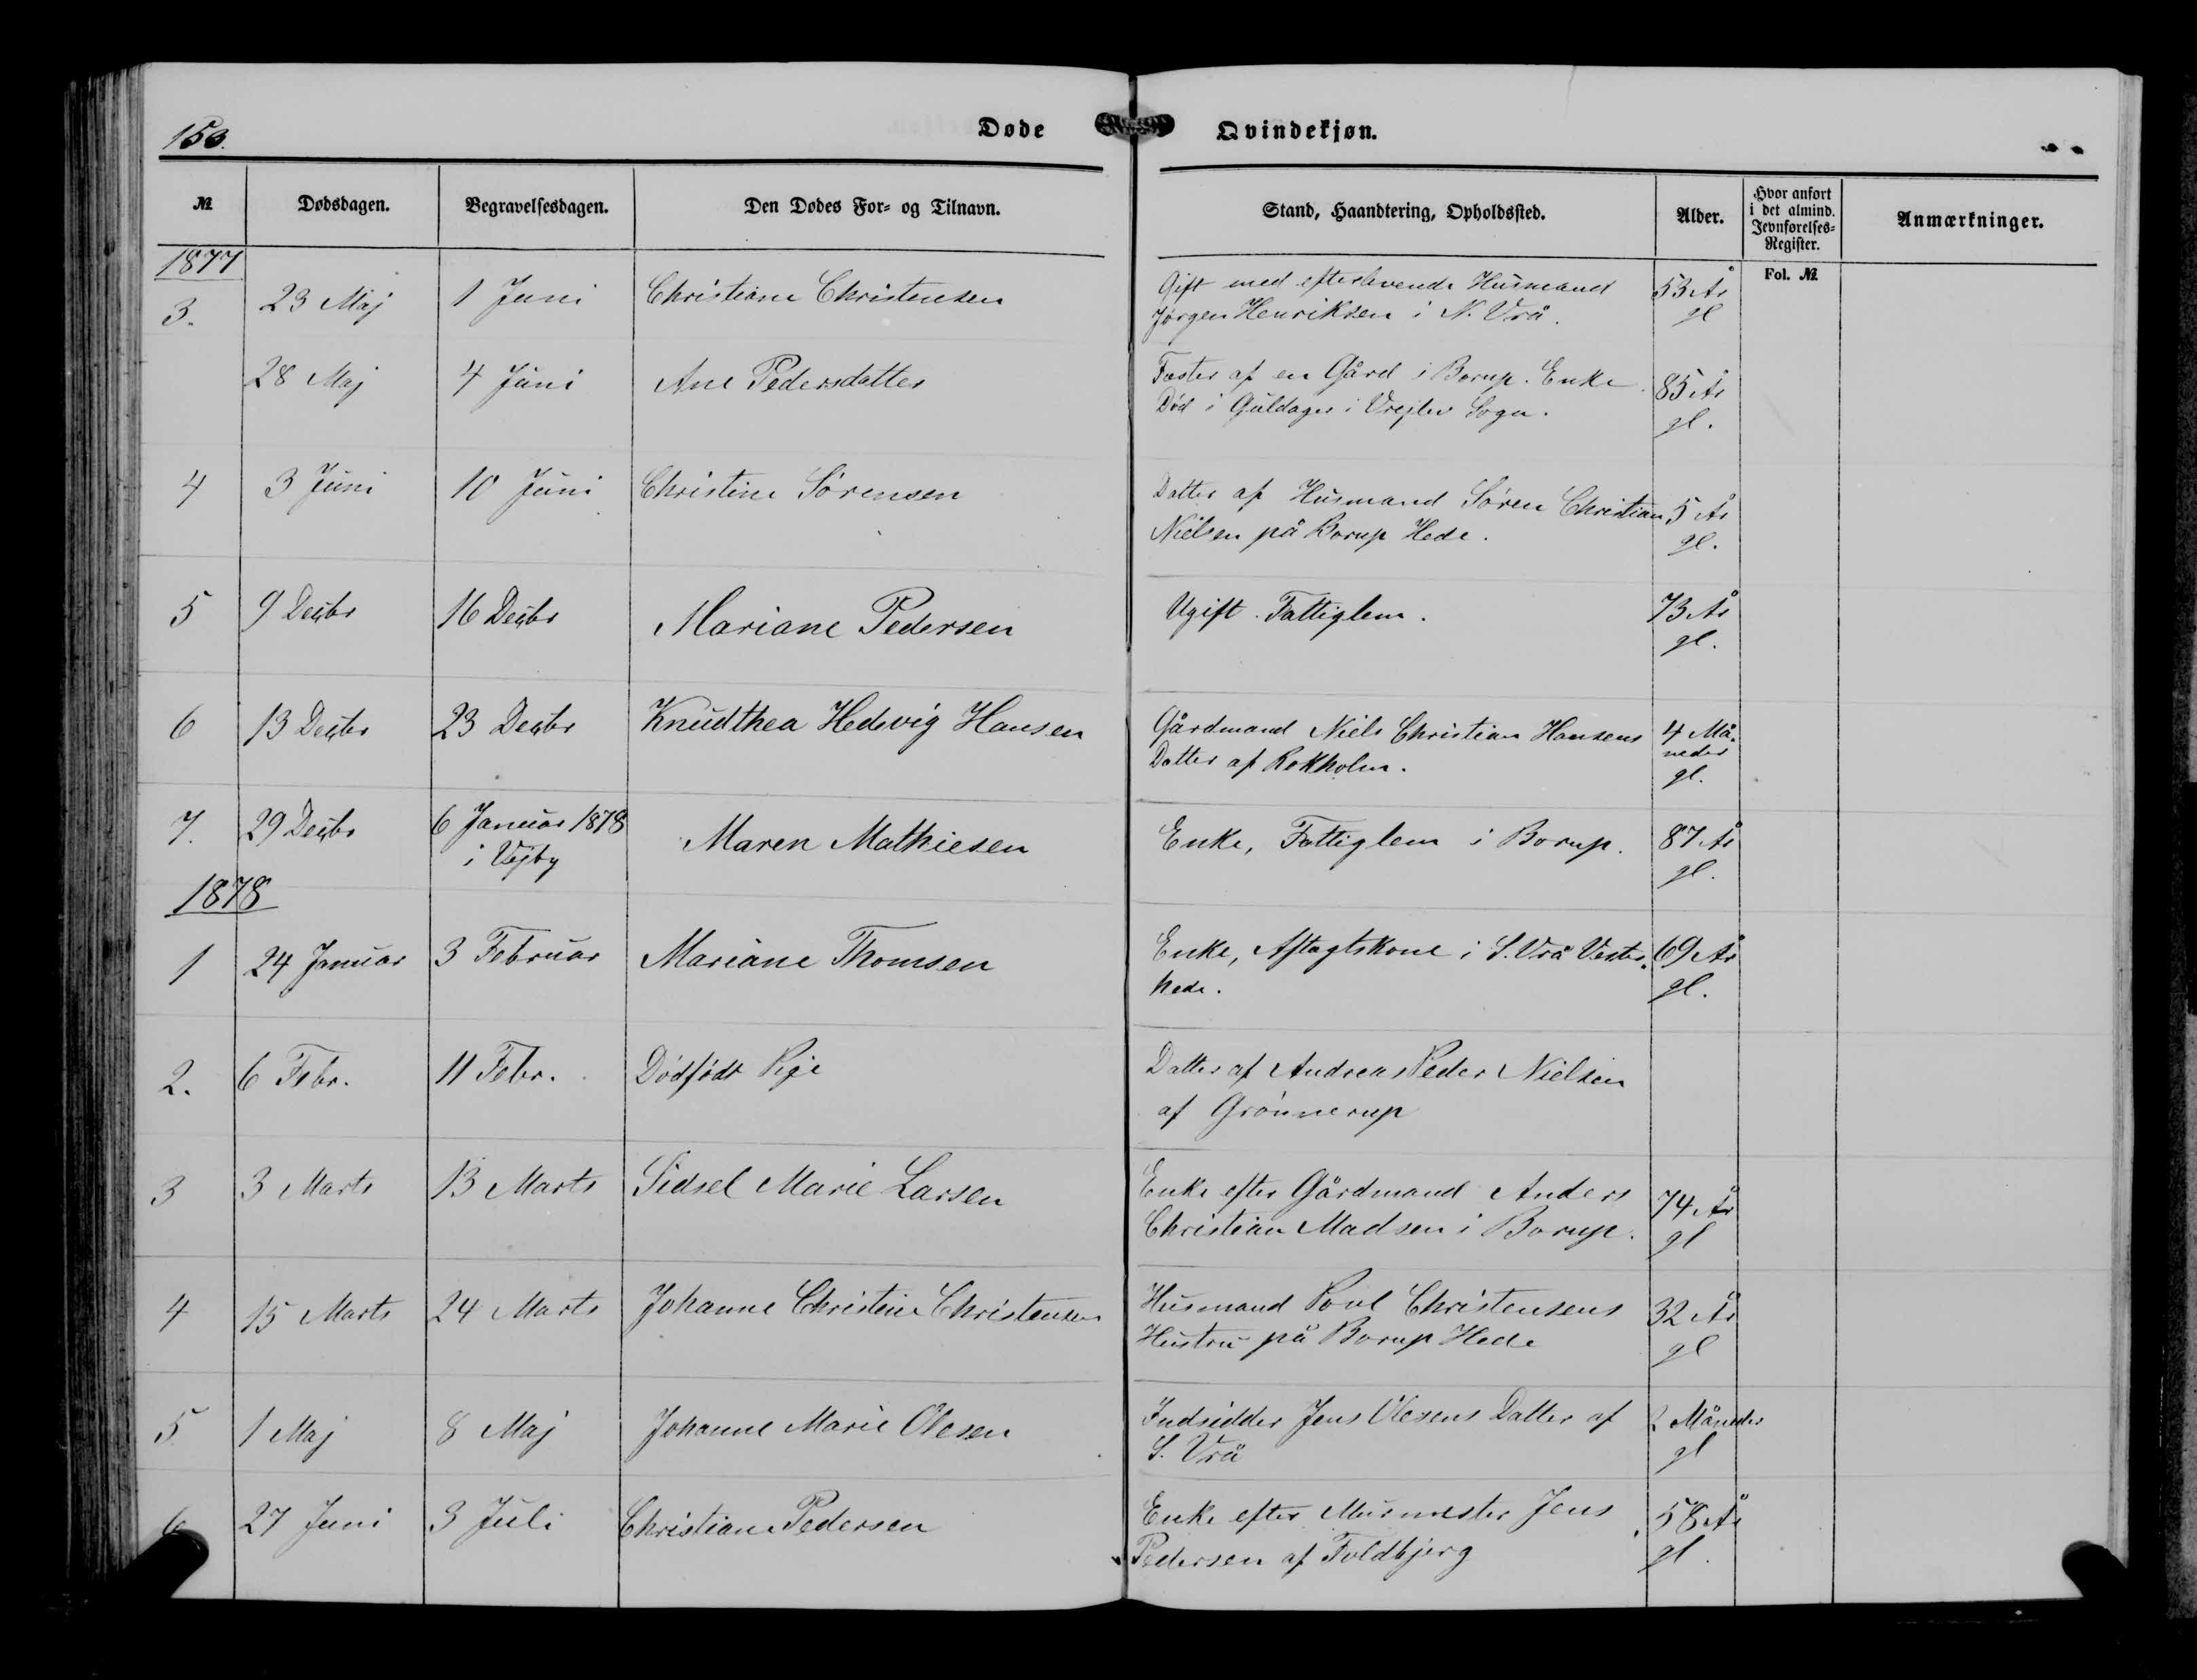 153.
Døde Qvindekjøn.
№ Dødsdagen. Begravelsesdagen. Den Dødes For- og Tilnavn. Stand, Haandtering, Opholdssted. Alder. Hvor anført i det almind. Jevnførelses-Register. Anmærkninger.
Fol. №
1877
3. 23 Maj 1 Juni Christiane Christensen Gift med efterlevende Husmand 53 År
Jørgen Henriksen i N. Vrå. gl
28 Maj 4 Juni Ane Pedersdatter Fæster af en Gård i Borup. Enke. 85 År
Død i Guldager i Vrejlev Sogn. gl.
4 3 Juni 10 Juni Christine Sørensen Datter af Husmand Søren Christian 5 År
Nielsen på Borup Hede. gl.
5 9 Decbr 16 Decbr Mariane Pedersen Ugift. Fattiglem. 73 År
gl.
6 13 Decbr 23 Decbr Knudthea Hedevig Hansen Gårdmand Niels Christian Hansens 4 Må-
Datter af Rokholm. neder
gl.
7. 29 Decbr 6 Januar 1878 Maren Mathiesen Enke, Fattiglem i Borup. 87 År
i Vejby gl.
1878
1 24 Januar 3 Februar Mariane Thomsen Enke, Aftagtskone i S. Vrå Vester- 69 År
hede. gl.
2. 6 Febr. 11 Febr. Dødfødt Pige Datter af Andreas Peder Nielsen
af Grønnerup
3 3 Marts 13 Marts Sidsel Marie Larsen Enke efter Gårdmand Anders 74 År
Christian Madsen i Borup. gl
4 15 Marts 24 Marts Johanne Christine Christensen Husmand Poul Christensens 32 År
Hustru på Borup Hede gl
5. 1 Maj 8 Maj Johanne Marie Olesen Indsidder Jens Olesens Datter af 2 Måneder
S. Vrå gl
6 27 Juni 3 Juli Christiane Pedersen Enke efter Murmester Jens 58 År
Pedersen af Foldbjerg gl.